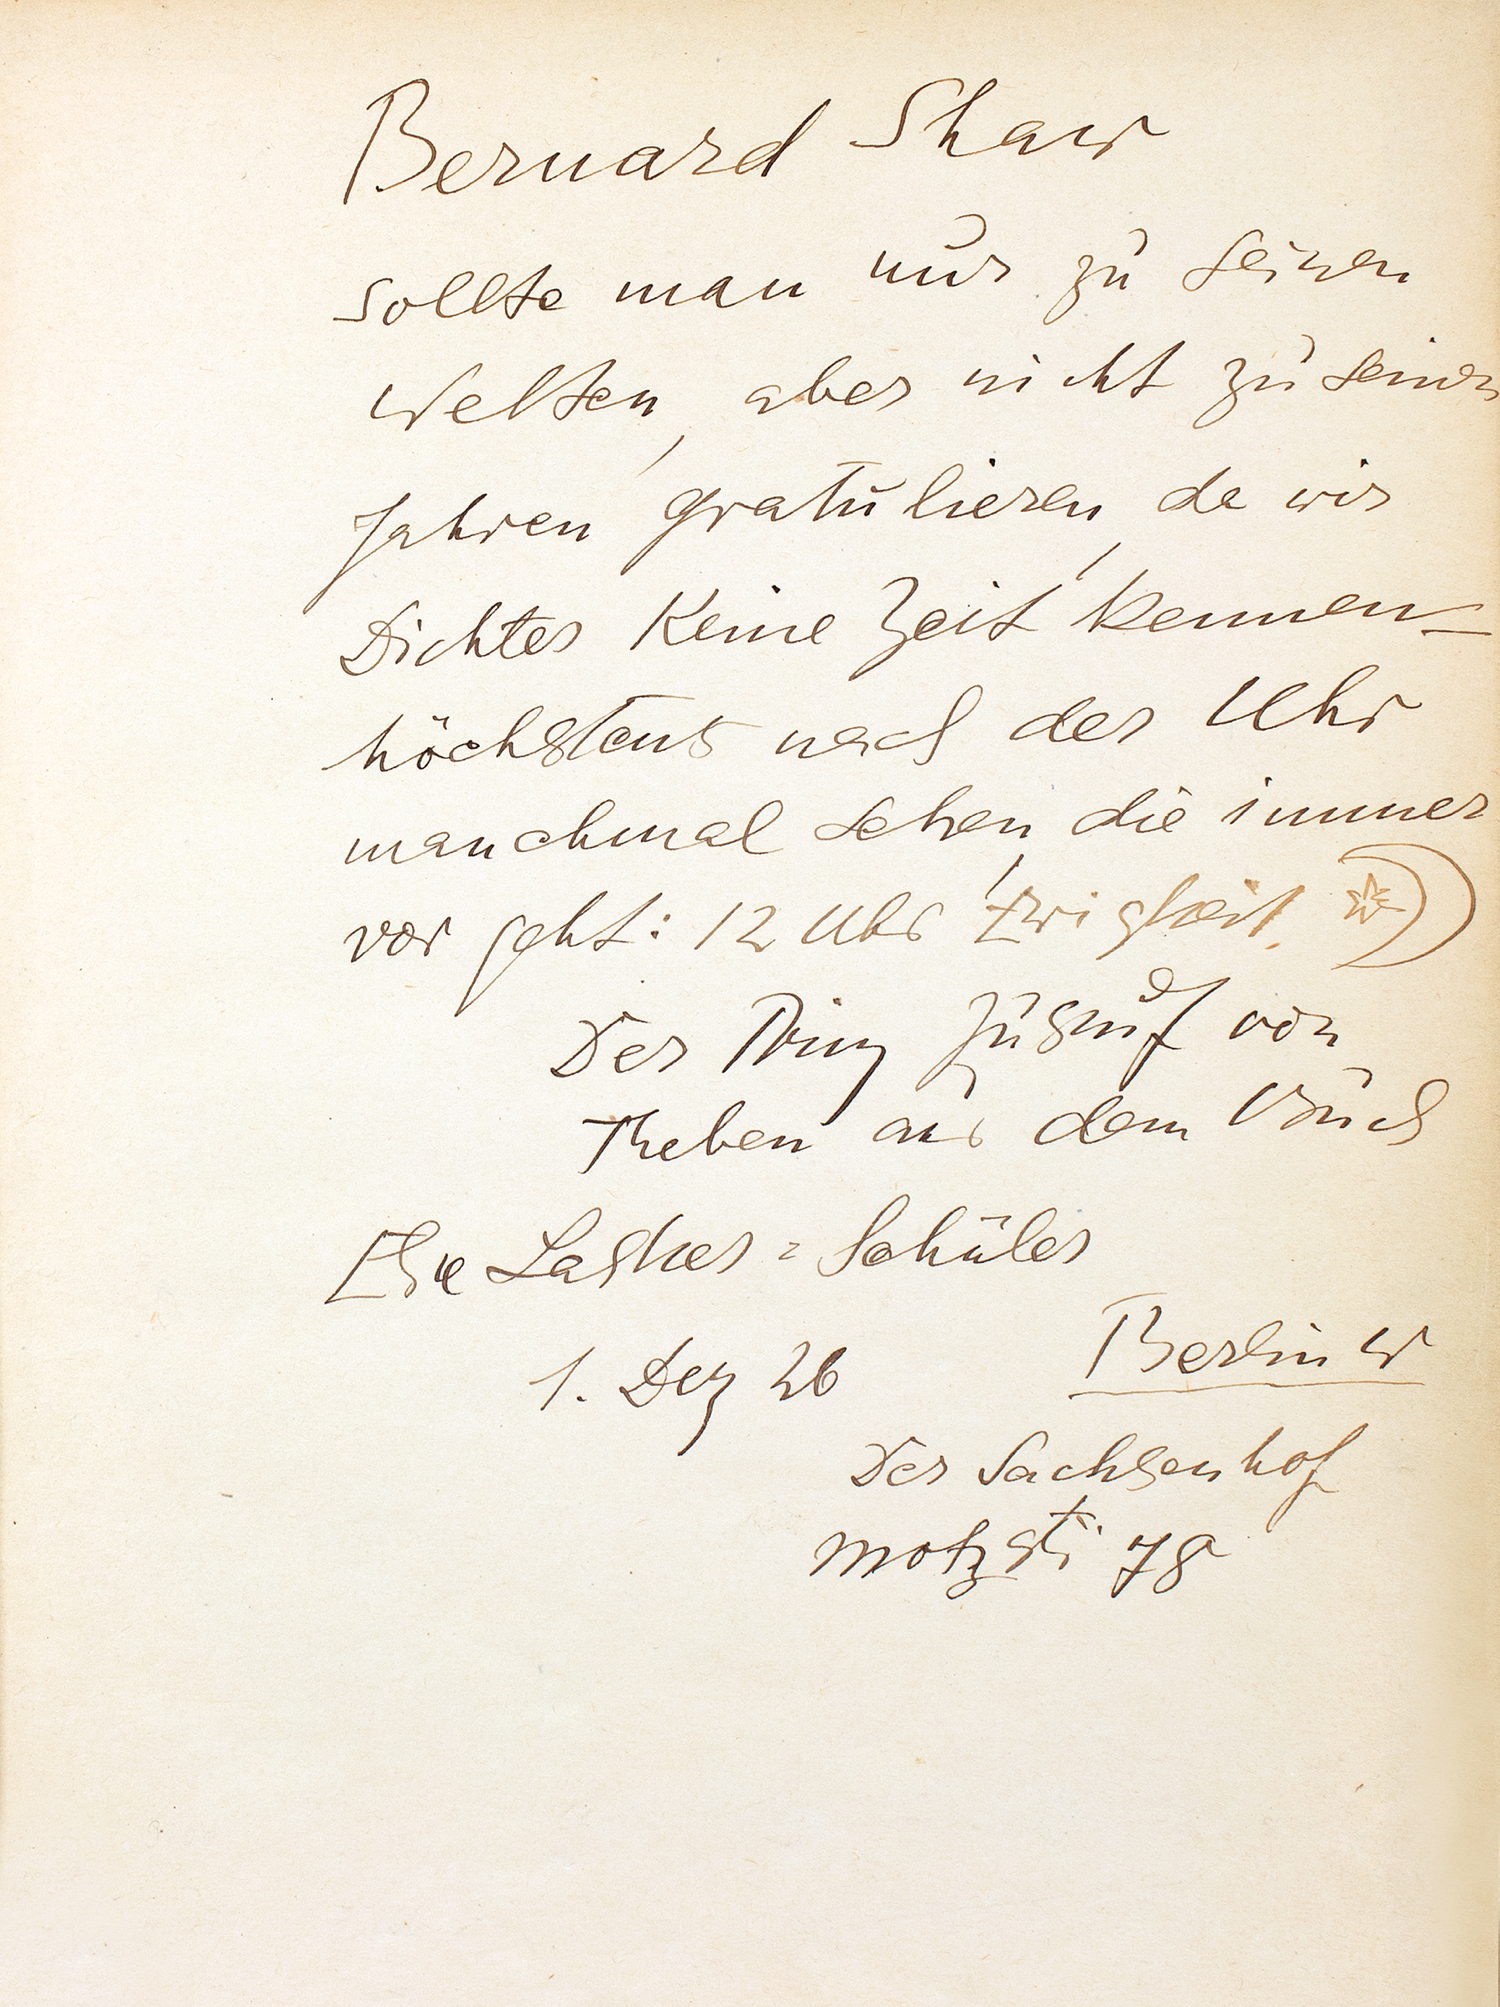 Bernard Shaw
sollte man nur zu seinen
Welten, aber nicht zu seinen
Jahren gratulieren, da wir
Dichter keine Zeit kennen –
höchstens nach der Uhr
manchmal sehen, die immer
vor geht: 12 Uhr Ewigkeit.
Der Prinz Jussuf von
Theben aus dem Buch
Else Lasker=Schüler
1. Dez 26
Berlin W
Der Sachsenhof
Motzstr 78